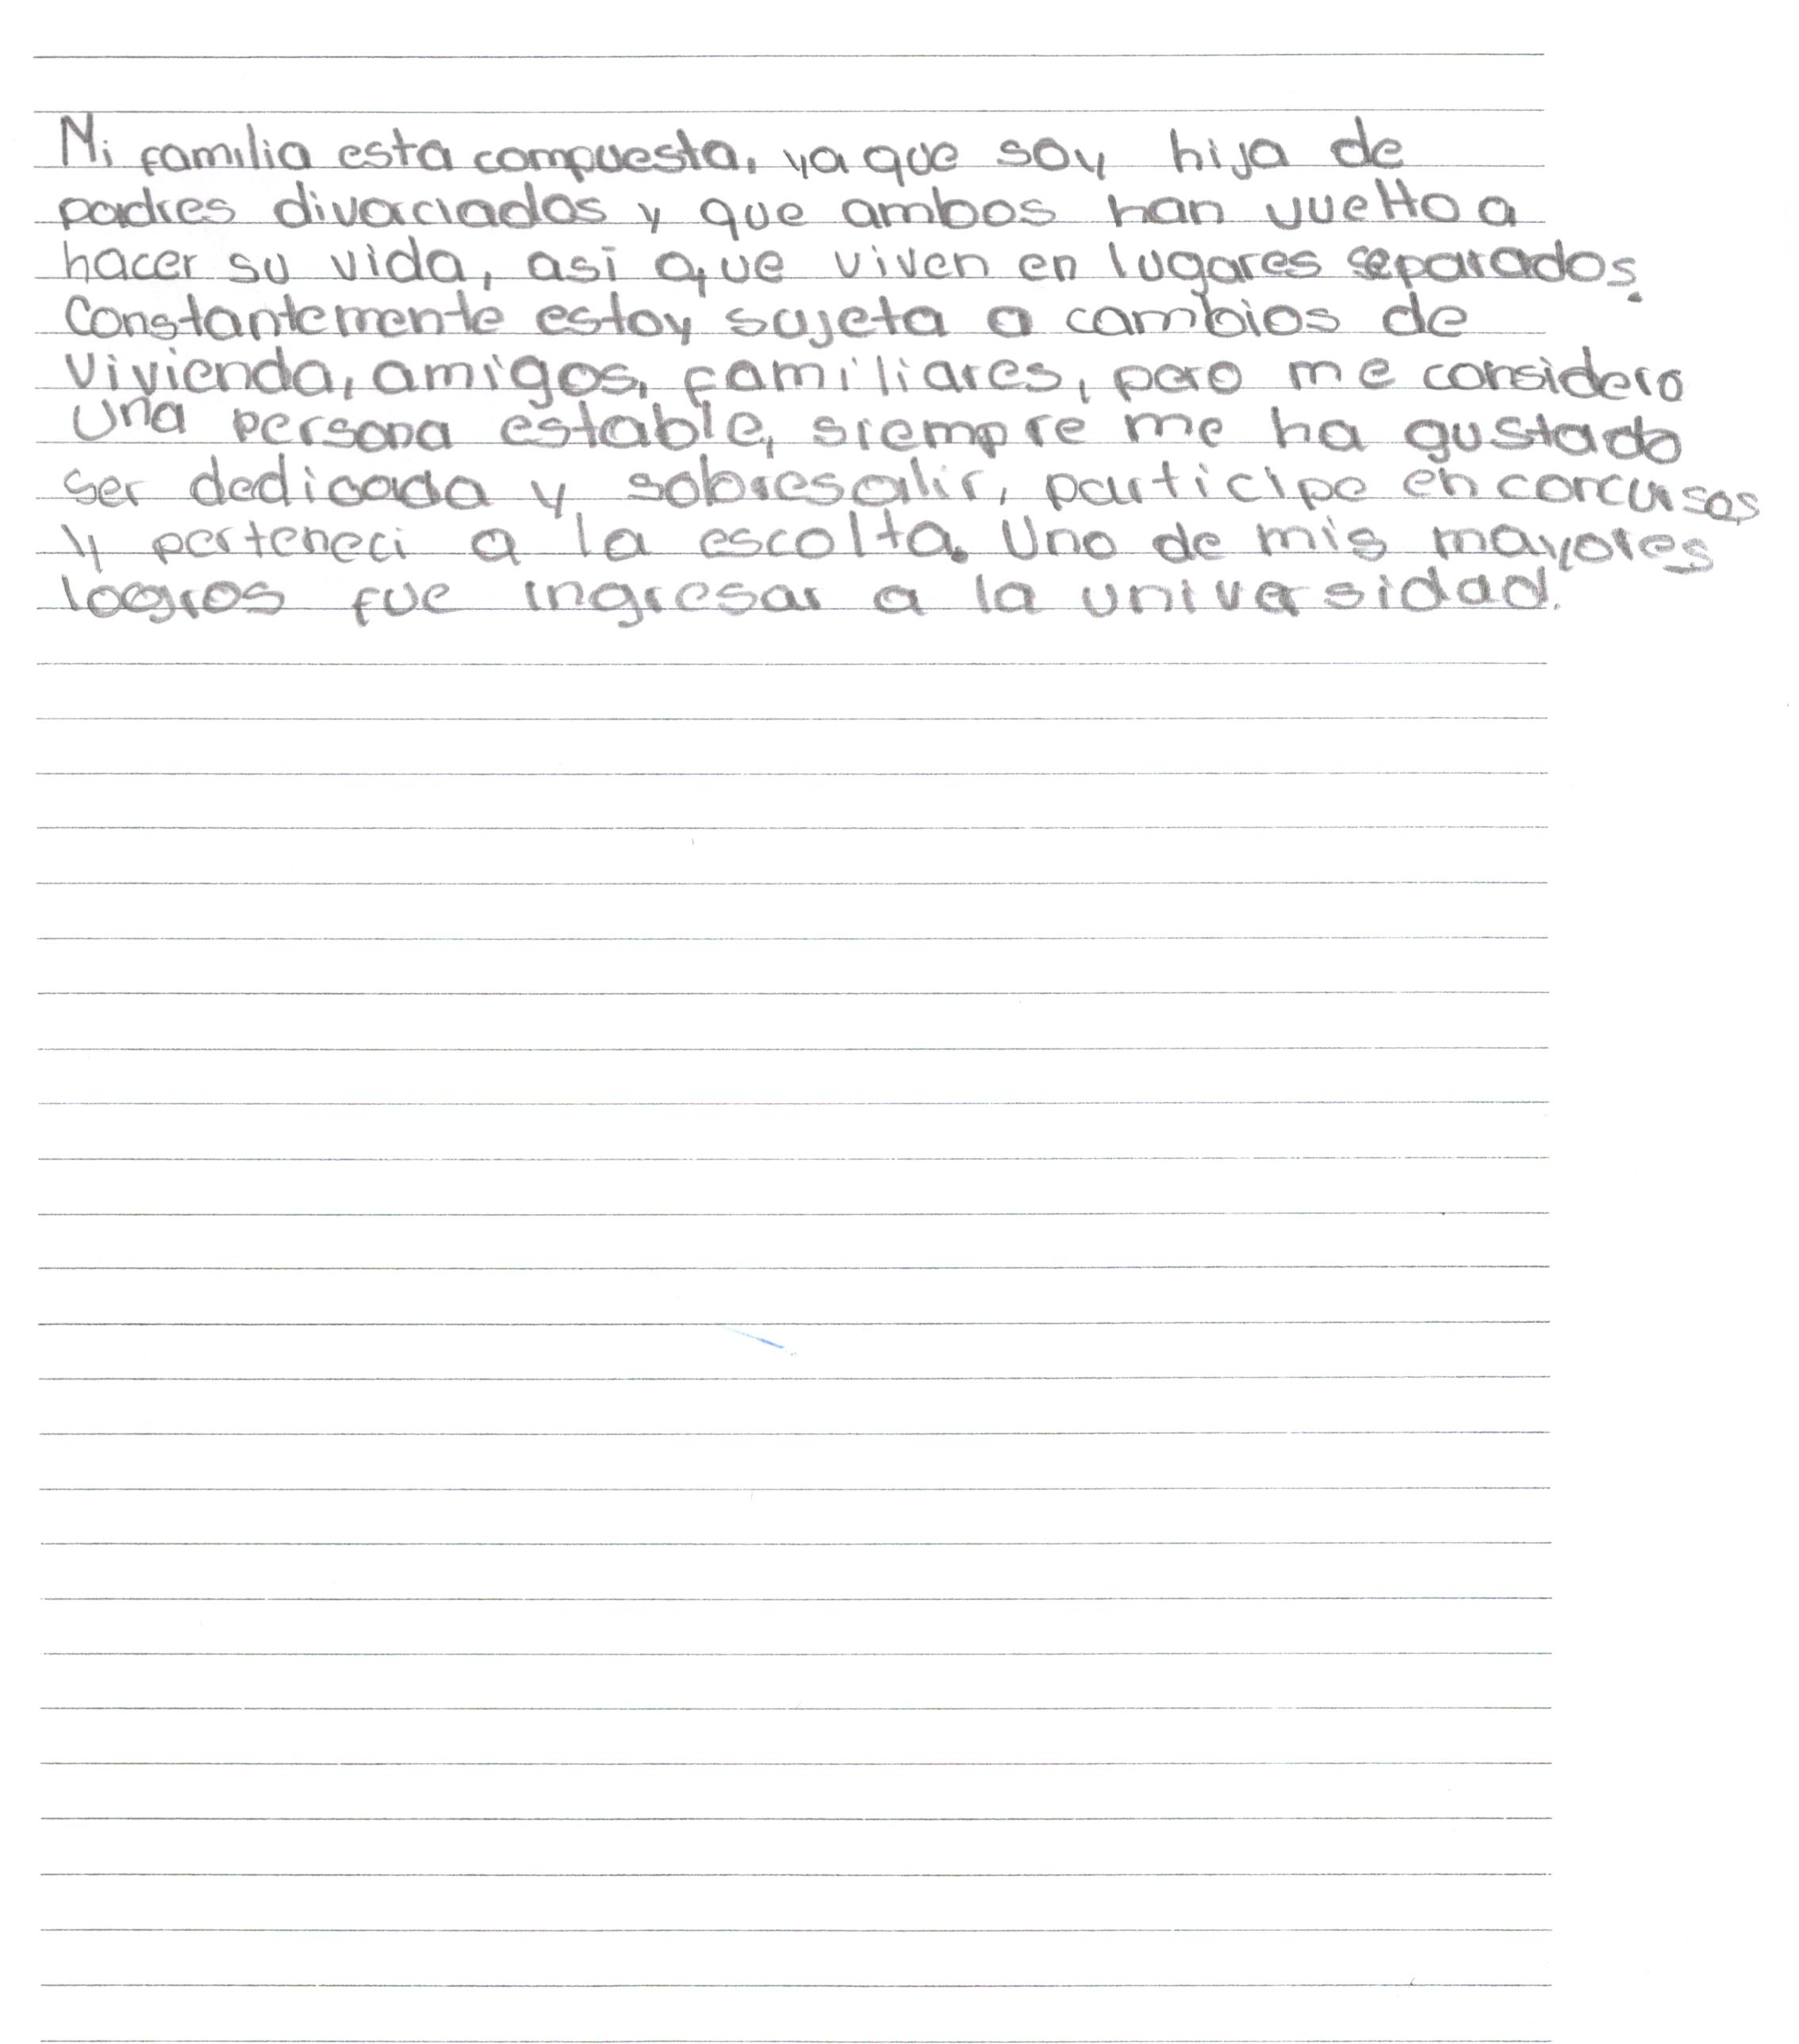 Mi familia esta compuesta, ya que soy hija de
padres divorciados y que ambos han vuelto a
hacer su vida, asi que viven en lugares separados.
Constantemente estoy sujeta a cambios de
vivienda, amigos, familiares, pero me considero
una persona estable, siempre me ha gustado
ser dedicada y sobresalir, participe en concursos
y perteneci a la escolta. Uno de mis mayores
logros fue ingresar a la universidad.